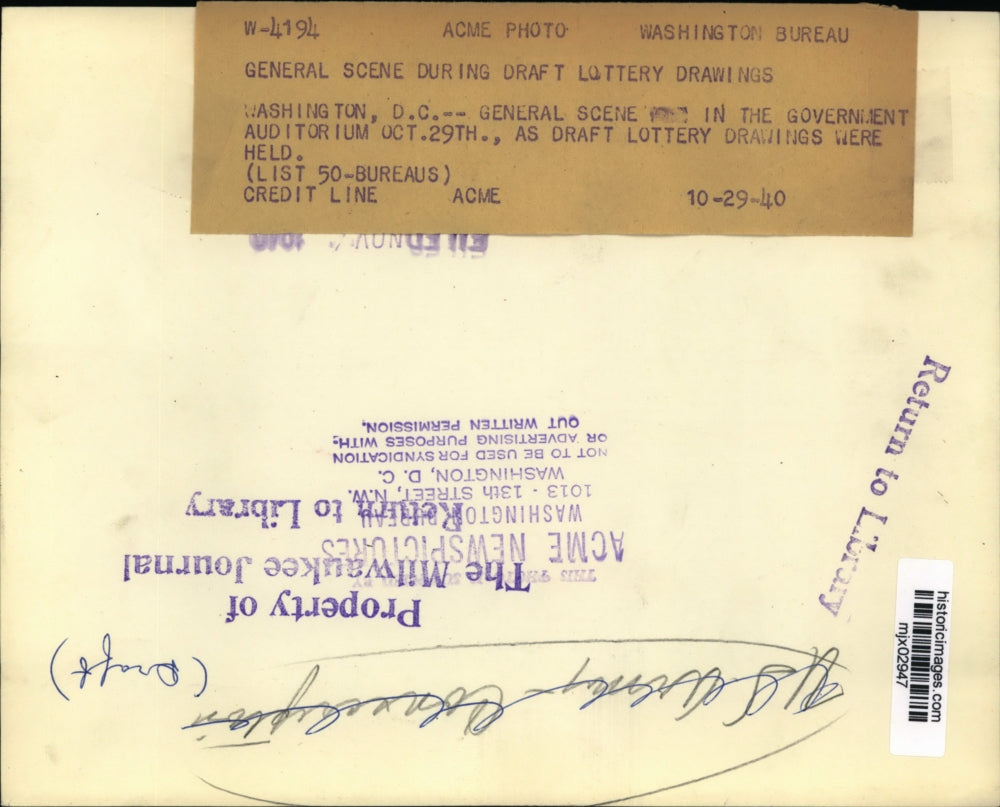 W-4194 ACME PHOTO WASHINGTON BUREAU
GENERAL SCENE DURING DRAFT LOTTERY DRAWINGS
WASHINGTON, D.C.-- GENERAL SCENE IN THE GOVERNMENT
AUDITORIUM OCT.29TH., AS DRAFT LOTTERY DRAWINGS WERE
HELD.
(LIST 50-BUREAUS)
CREDIT LINE ACME 10-29-40
FILED NOV
Return to Library
historicimages.com
mjx02947
U S Army - Conscription
(Draft)
Property of
The Milwaukee Journal
Return to Library
ACME NEWSPICTURES
WASHINGTON BUREAU
1013 - 13th STREET, N.W.
WASHINGTON, D. C.
NOT TO BE USED FOR SYNDICATION
OR ADVERTISING PURPOSES WITH-
OUT WRITTEN PERMISSION.